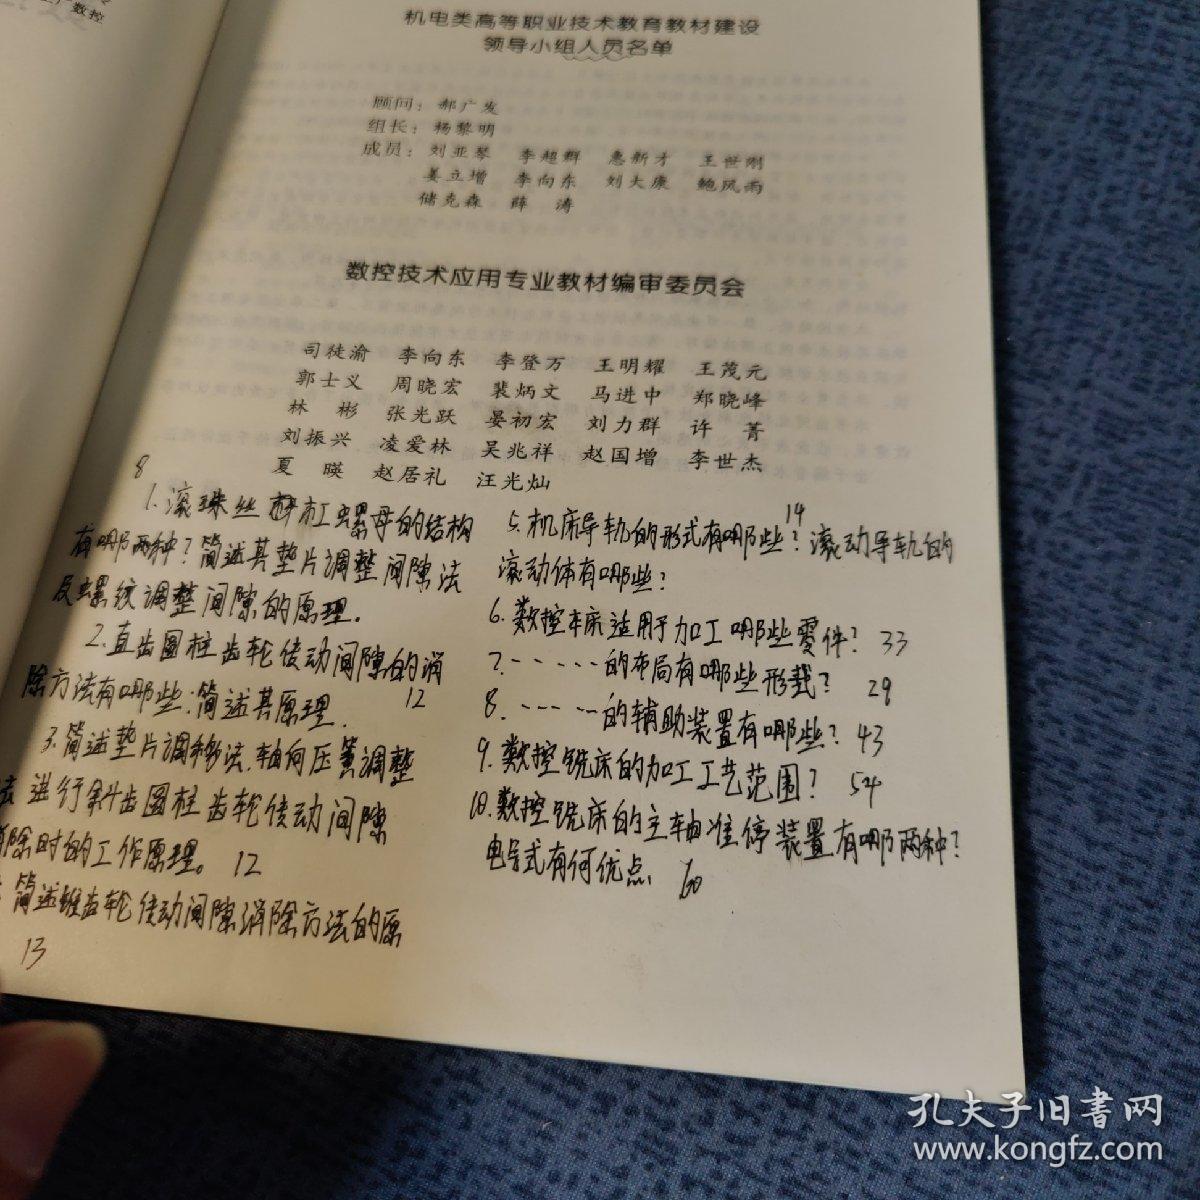 数控
机电类高等职业技术教育教材建设
领导小组人员名单
顾问：郝广发
组长：杨黎明
成员：刘亚琴 李超群 惠新才 王世刚
姜立增 李向东 刘大康 鲍风雨
储克森 薛 涛
数控技术应用专业教材编审委员会
司徒渝 李向东 李登万 王明耀 王茂元
郭士义 周晓宏 裴炳文 马进中 郑晓峰
林 彬 张光跃 晏初宏 刘力群 许 菁
刘振兴 凌爱林 吴兆祥 赵国增 李世杰
夏 暎 赵居礼 汪光灿
8
1.滚珠丝杠螺母的结构
有哪两种？简述其垫片调整间隙法
及螺纹调整间隙的原理.
2.直齿圆柱齿轮传动间隙的消
除方法有哪些;简述其原理. 12
3.简述垫片调移法.轴向压簧调整
法进行斜齿圆柱齿轮传动间隙
消除时的工作原理。 12
简述锥齿轮传动间隙消除方法的原
13
14
5.机床导轨的形式有哪些？滚动导轨的
滚动体有哪些？
6.数控车床适用于加工哪些零件？ 33
7.------的布局有哪些形载？ 29
8.----的辅助装置有哪些？ 43
9.数控铣床的加工工艺范围？ 54
10.数控铣床的主轴准停装置有哪两种？
电气式有何优点. 60
孔夫子旧书网
www.kongfz.com